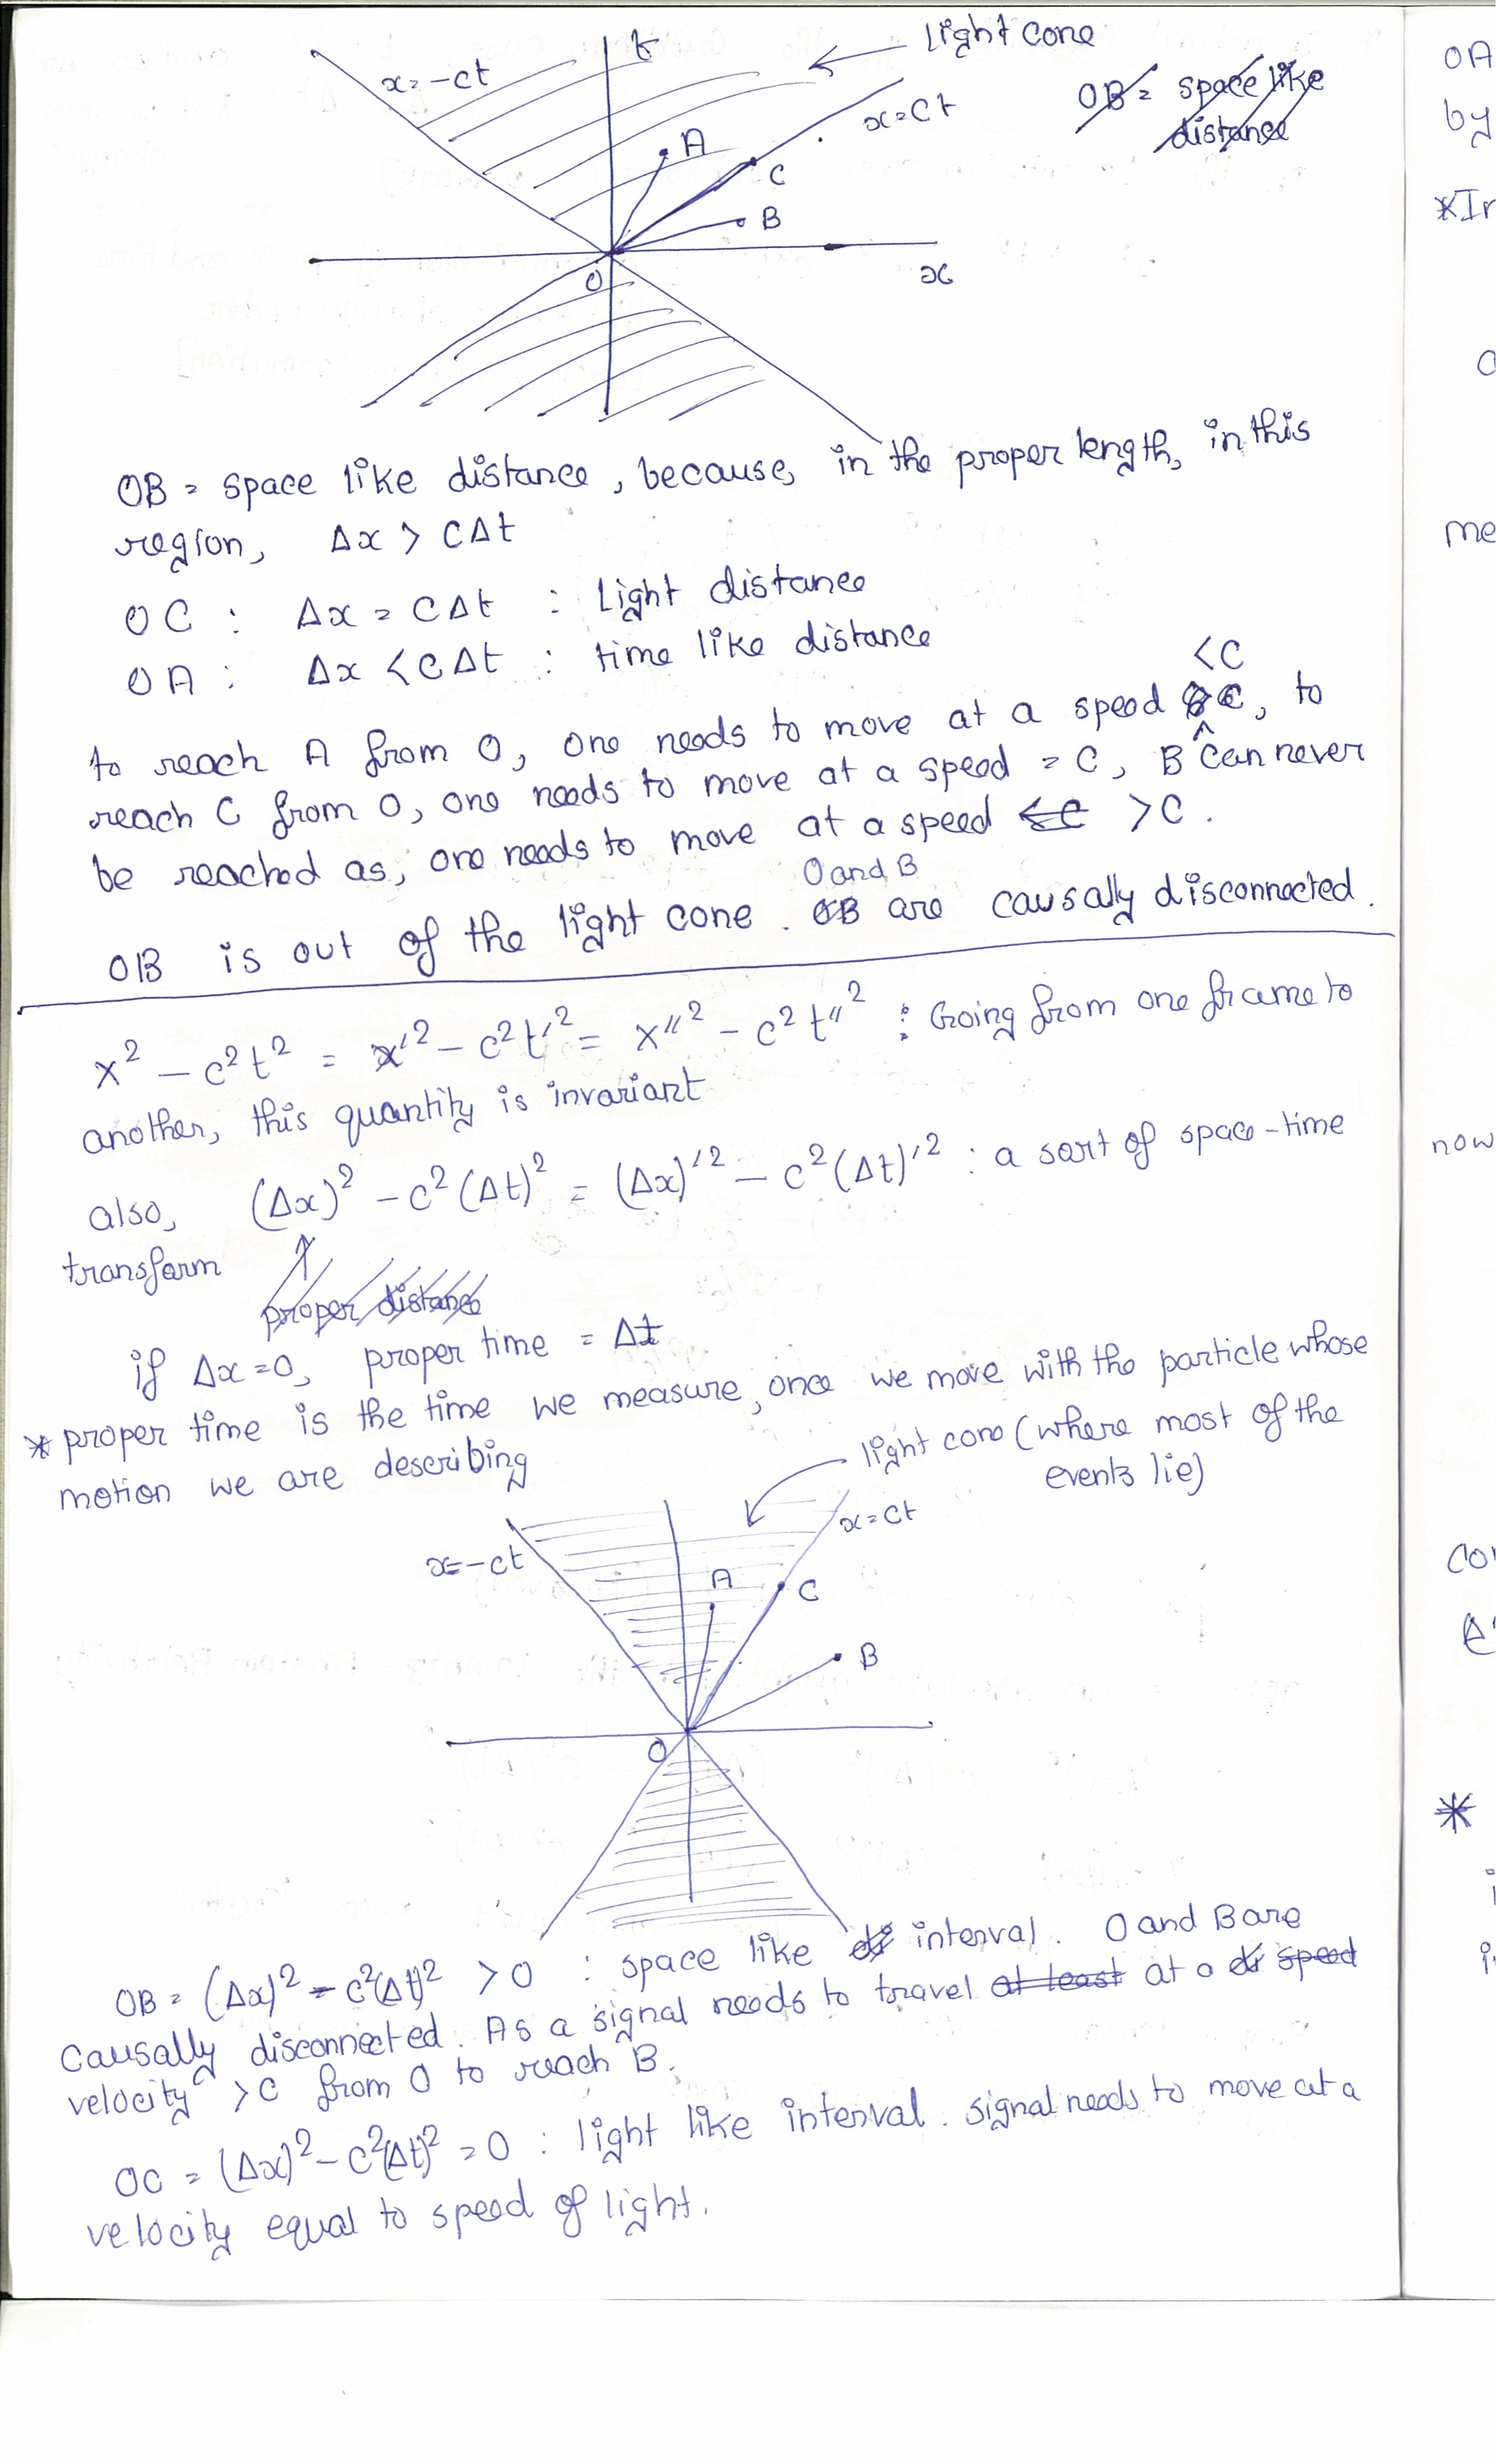 t
Light cone
x=-ct
x=ct
OB = space like
distance
A
C
B
O
x
OB = space like distance, because, in the proper length, in this
region, Δx > CΔt
OC : Δx = CΔt : Light distance
OA : Δx < CΔt : time like distance
to reach A from O, one needs to move at a speed <C, to
reach C from O, one needs to move at a speed = C, B can never
be reached as, one needs to move at a speed <C >C.
OB is out of the light cone. O and B are causally disconnected.
x² - c²t² = x'² - c²t'² = x''² - c²t''² : Going from one frame to
another, this quantity is invariant
also, (Δx)² - c²(Δt)² = (Δx)'² - c²(Δt)'² : a sort of space-time
transform
proper distance
if Δx=0, proper time = Δt
* proper time is the time we measure, once we move with the particle whose
motion we are describing
light cone (where most of the
events lie)
x=-ct
x=ct
A
C
B
O
OB = (Δx)² - c²(Δt)² >0 : space like interval. O and B are
Causally disconnected. As a signal needs to travel at least at a speed
velocity >C from O to reach B.
OC = (Δx)² - c²(Δt)² = 0 : light like interval. signal needs to move at a
velocity equal to speed of light.
OA
by
*In
me
now
*